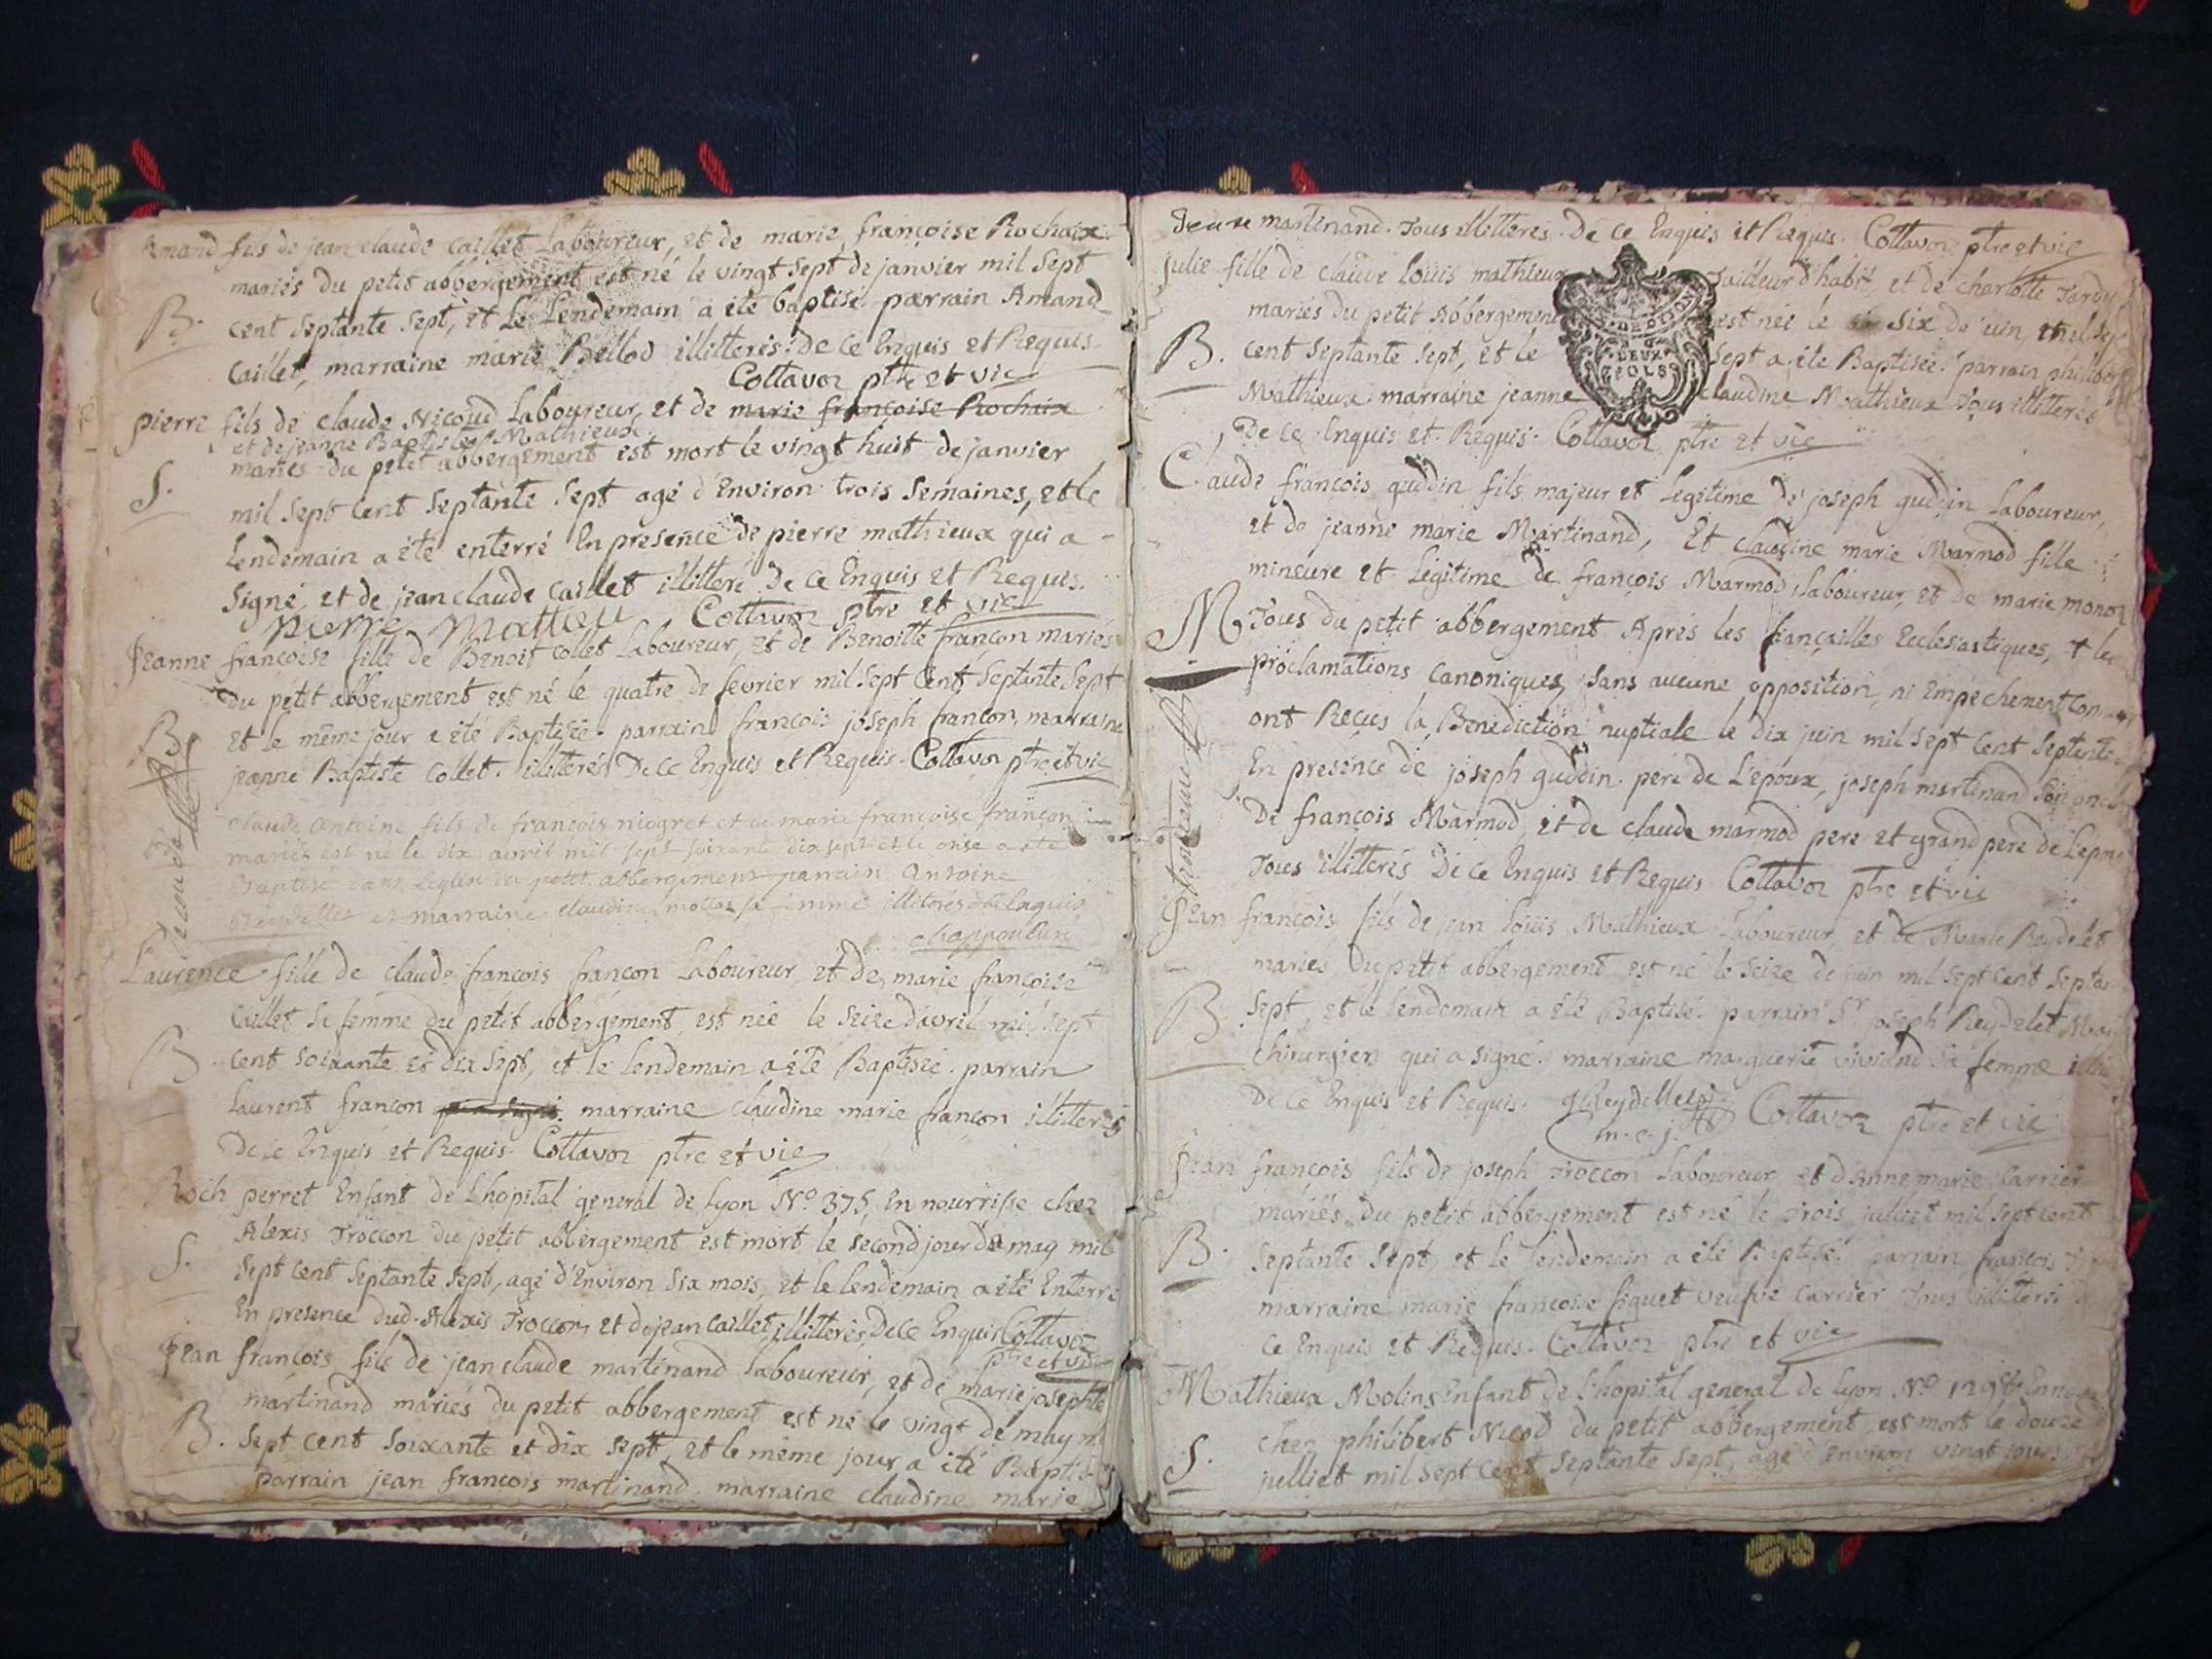 Amand fils de jean claude Caillet Laboureur, et de marie françoise Rochaix
mariés du petit abbergement est né le vingt sept de janvier mil sept
B. cent septante sept, et le Lendemain a été baptisé parrain Amand
Caillet, marraine marie Bellod illitterés. De ce Enquis et Requis.
Cottavoz ptre et vic
pierre fils de claude Nicoud Laboureur, et de marie françoise Rochaix
et de jeanne Baptiste Mathieux
mariés du petit abbergement est mort le vingt huit de janvier
S. mil sept cent septante sept agé d'Environ trois semaines, et le
Lendemain a été enterré En presence de pierre mathieux qui a
signé, et de jean claude Caillet illitteré De ce Enquis et Requis.
pierre Matieu Cottavoz ptre et vic
Jeanne françoise fille de Benoit Collet Laboureur, et de Benoitte françon mariés
du petit abbergement est né le quatre de fevrier mil sept Cent septante sept
B. et le même jour a été Baptisée parrain françois joseph françon, marraine
jeanne Baptiste Collet illitterés De ce Enquis et Requis. Cottavoz ptre et vic
claude antoine fils de francois niogret et de marie françoise françon
mariés est né le dix avril mil sept soixante dix sept et le onse a été
Baptisé dans leglise du petit abbergement parrain antoine
Reydellet et marraine claudine mollas sa femme illiterés de ce enquis
Laurence fille de claude françois françon Laboureur, et de marie françoise
Caillet sa femme du petit abbergement, est née le seize d'avril mil sept
B. cent soixante et dix sept, et le lendemain a été Baptisée. parrain
Laurent françon marraine claudine marie françon illitterés
De ce Enquis et Requis. Cottavoz ptre et vic
Roch perret Enfant de L'hopital general de Lyon N.o 375, En nourrisse chez
Alexis Troccon du petit abbergement est mort le second jour de may mil
S. sept cent septante sept, agé d'Environ six mois, et le lendemain a été Enterré
En presence dud. Alexis Troccon, et de jean Caillet, illitterés, De ce Enquis Cottavoz
ptre et vic
Jean françois fils de jean claude martinand laboureur, et de marie josephte
martinand mariés du petit abbergement est né le vingt de may
B. sept cent soixante et dix sept, et le même jour a été
parrain jean françois martinand marraine claudine marie
martinand. Tous illitterés. De ce Enquis et Requis. Cottavoz ptre et vic
julie fille de claude louis mathieux Tailleur d'habit, et de charlotte Tardy
mariés du petit Abbergement est née le six de juin mil sept
B. cent septante sept, et le sept a été Baptisée. parrain philibert
Mathieux marraine jeanne claudine Mathieux Tous illitterés
De ce Enquis et Requis. Cottavoz ptre et vic
Claude françois guddin fils majeur et Legitime de joseph guddin Laboureur,
et de jeanne marie Martinand, Et claudine marie Marmod fille
mineure et Légitime de françois Marmod, laboureur, et de marie monoz
M Tous du petit abbergement Apres les fiançailles Ecclesiastiques, et les
proclamations Canoniques, sans aucune opposition, ni Empechement
ont Reçus la Benediction nuptiale le dix juin mil sept cent septante
En presence de joseph guddin pere de L'epoux, joseph martinand
De françois Marmod, et de claude marmod pere et grand pere de
Tous illitterés De ce Enquis et Requis Cottavoz ptre et vic
Jean françois fils de jean louis Mathieux Laboureur, et de Marie Reydelet
mariés du petit abbergement est né le seize de juin mil sept cent
B. sept, et le lendemain a été Baptisé. parrain Sr joseph Reydelet
chirurgien qui a signé. marraine marguerite Viviand sa femme
De ce Enquis et Requis. Cottavoz ptre et vic
Jean françois fils de joseph Troccon Laboureur et d'Anne marie Carrier
mariés du petit abbergement est né le Trois julliet mil sept cent
B. septante sept, et le lendemain a été Baptisé. parrain françois
marraine marie françoise siquet veufve Carrier Tous illitterés
Ce Enquis et Requis. Cottavoz ptre et vic
Mathieux Molins Enfant de L'hopital general de Lyon N.o
chez philibert Nicod du petit abbergement, est mort le douze
S. julliet mil sept cent septante sept, agé d'Environ vingt jours